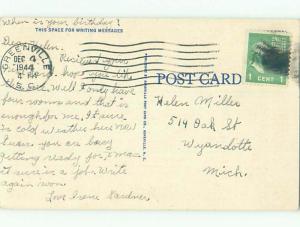 when is your birthday?
THIS SPACE FOR WRITING MESSAGES
Dear Helen,
Received your
hope
Well I only have
four rooms and that is
enough for me. It sure
is cold weather here now
I hear you are busy
getting ready for Xmas
it sure is a job. Write
again soon.
Love Irene Gardner
GREENVILLE
DEC 4
1944
4 PM
S.C.
POST CARD
1 CENT 1
Helen Miller
514 Oak St
Wyandotte
Mich.